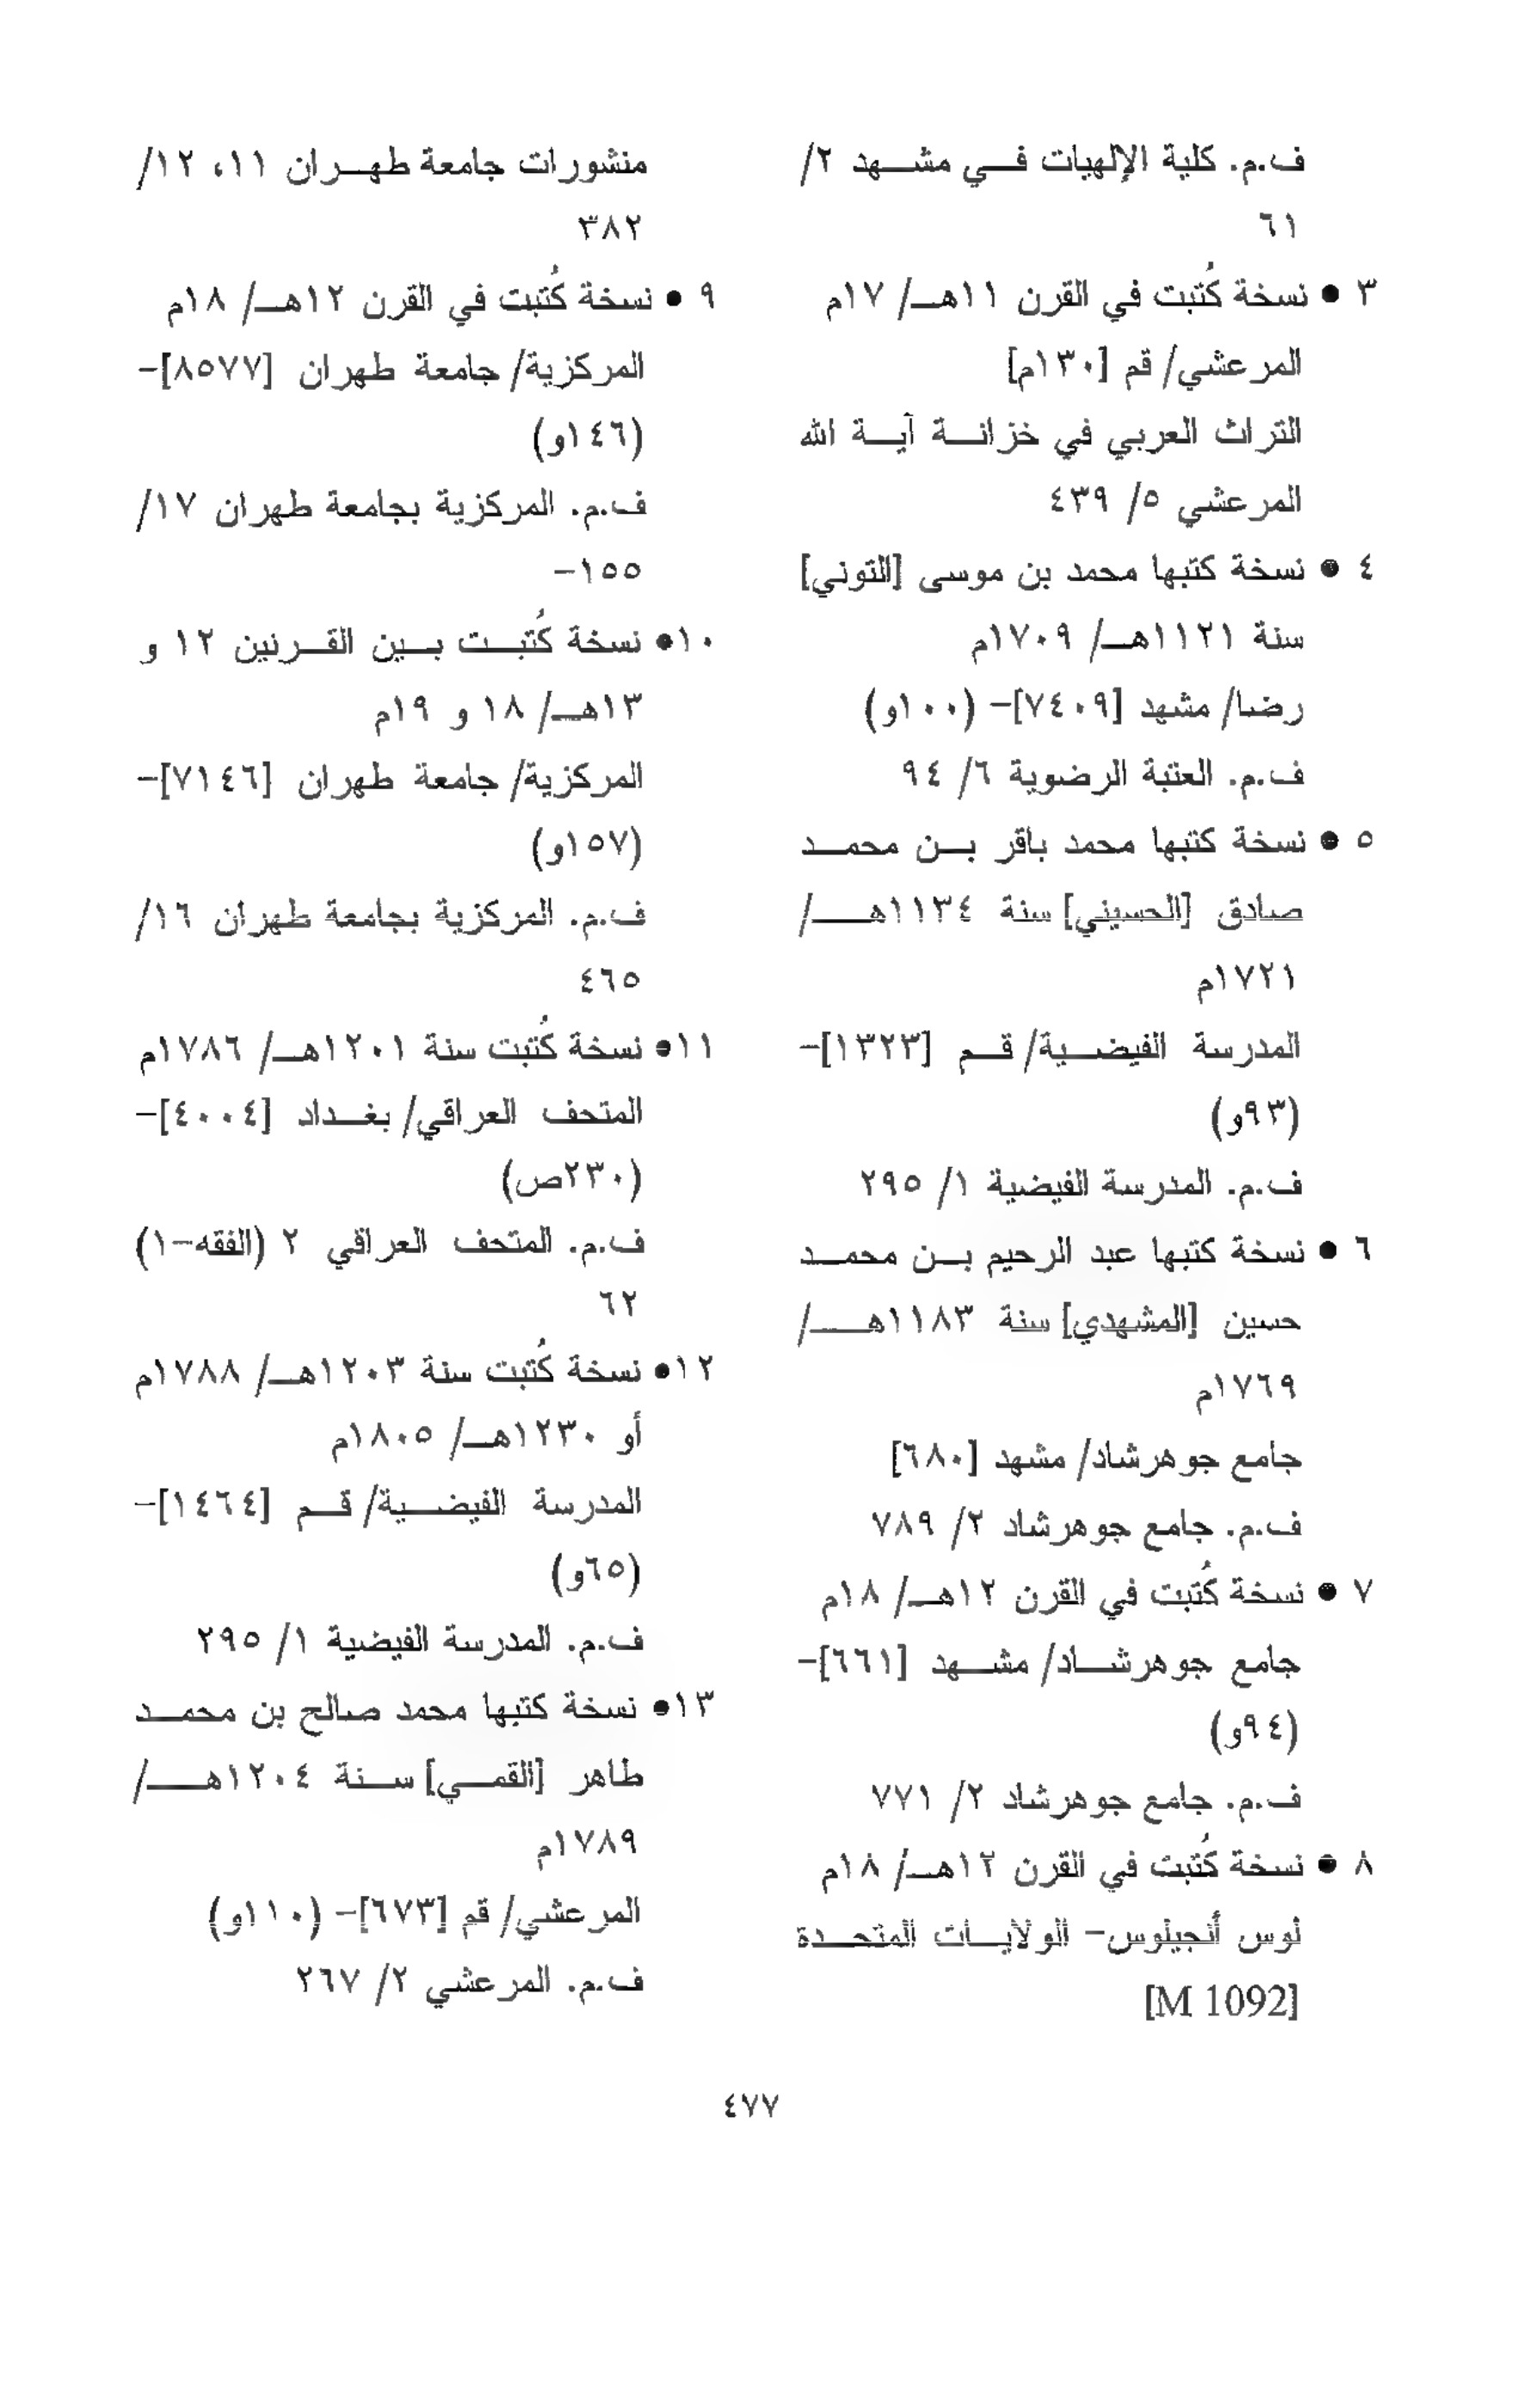 ف.م. كلية الإلهيات في مشهد ٢/
٦١
٣ • نسخة كُتبت في القرن ١١هـ/ ١٧م
المرعشي/ قم [١٣٠م]
التراث العربي في خزانة آية الله
المرعشي ٥/ ٤٣٩
٤ • نسخة كتبها محمد بن موسى [التوني]
سنة ١١٢١هـ/ ١٧٠٩م
رضا/ مشهد [٧٤٠٩]- (١٠٠و)
ف.م. العتبة الرضوية ٦/ ٩٤
٥ • نسخة كتبها محمد باقر بن محمد
صادق [الحسيني] سنة ١١٣٤هـ/
١٧٢١م
المدرسة الفيضية/ قم [١٣٢٣]-
(٩٣و)
ف.م. المدرسة الفيضية ١/ ٢٩٥
٦ • نسخة كتبها عبد الرحيم بن محمد
حسين [المشهدي] سنة ١١٨٣هـ/
١٧٦٩م
جامع جوهرشاد/ مشهد [٦٨٠]
ف.م. جامع جوهرشاد ٢/ ٧٨٩
٧ • نسخة كُتبت في القرن ١٢هـ/ ١٨م
جامع جوهرشاد/ مشهد [٦٦١]-
(٩٤و)
ف.م. جامع جوهرشاد ٢/ ٧٧١
٨ • نسخة كُتبت في القرن ١٢هـ/ ١٨م
لوس أنجيلوس- الولايات المتحدة
[M 1092]
منشورات جامعة طهران ١١، ١٢/
٣٨٢
٩ • نسخة كُتبت في القرن ١٢هـ/ ١٨م
المركزية/ جامعة طهران [٨٥٧٧]-
(١٤٦و)
ف.م. المركزية بجامعة طهران ١٧/
١٥٥-
١٠• نسخة كُتبت بين القرنين ١٢ و
١٣هـ/ ١٨ و ١٩م
المركزية/ جامعة طهران [٧١٤٦]-
(١٥٧و)
ف.م. المركزية بجامعة طهران ١٦/
٤٦٥
١١• نسخة كُتبت سنة ١٢٠١هـ/ ١٧٨٦م
المتحف العراقي/ بغداد [٤٠٠٤]-
(٢٣٠ص)
ف.م. المتحف العراقي ٢ (الفقه-١)
٦٢
١٢• نسخة كُتبت سنة ١٢٠٣هـ/ ١٧٨٨م
أو ١٢٣٠هـ/ ١٨٠٥م
المدرسة الفيضية/ قم [١٤٦٤]-
(٦٥و)
ف.م. المدرسة الفيضية ١/ ٢٩٥
١٣• نسخة كتبها محمد صالح بن محمد
طاهر [القمي] سنة ١٢٠٤هـ/
١٧٨٩م
المرعشي/ قم [٦٧٣]- (١١٠و)
ف.م. المرعشي ٢/ ٢٦٧
٤٧٧